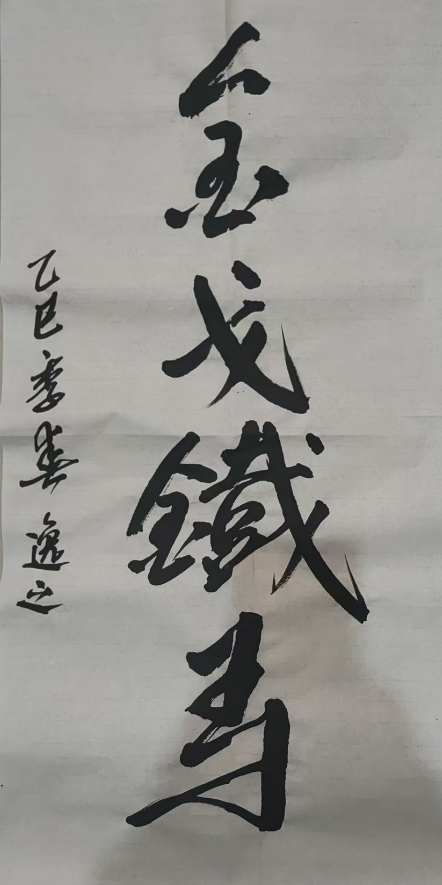 金戈鐵馬
乙巳季春逸之